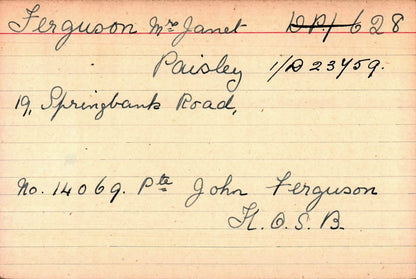 Ferguson Mrs Janet D.P./ 628
Paisley 1/D 23459.
19, Springbank Road,
No. 14069. Pte John Ferguson
K.O.S.B.